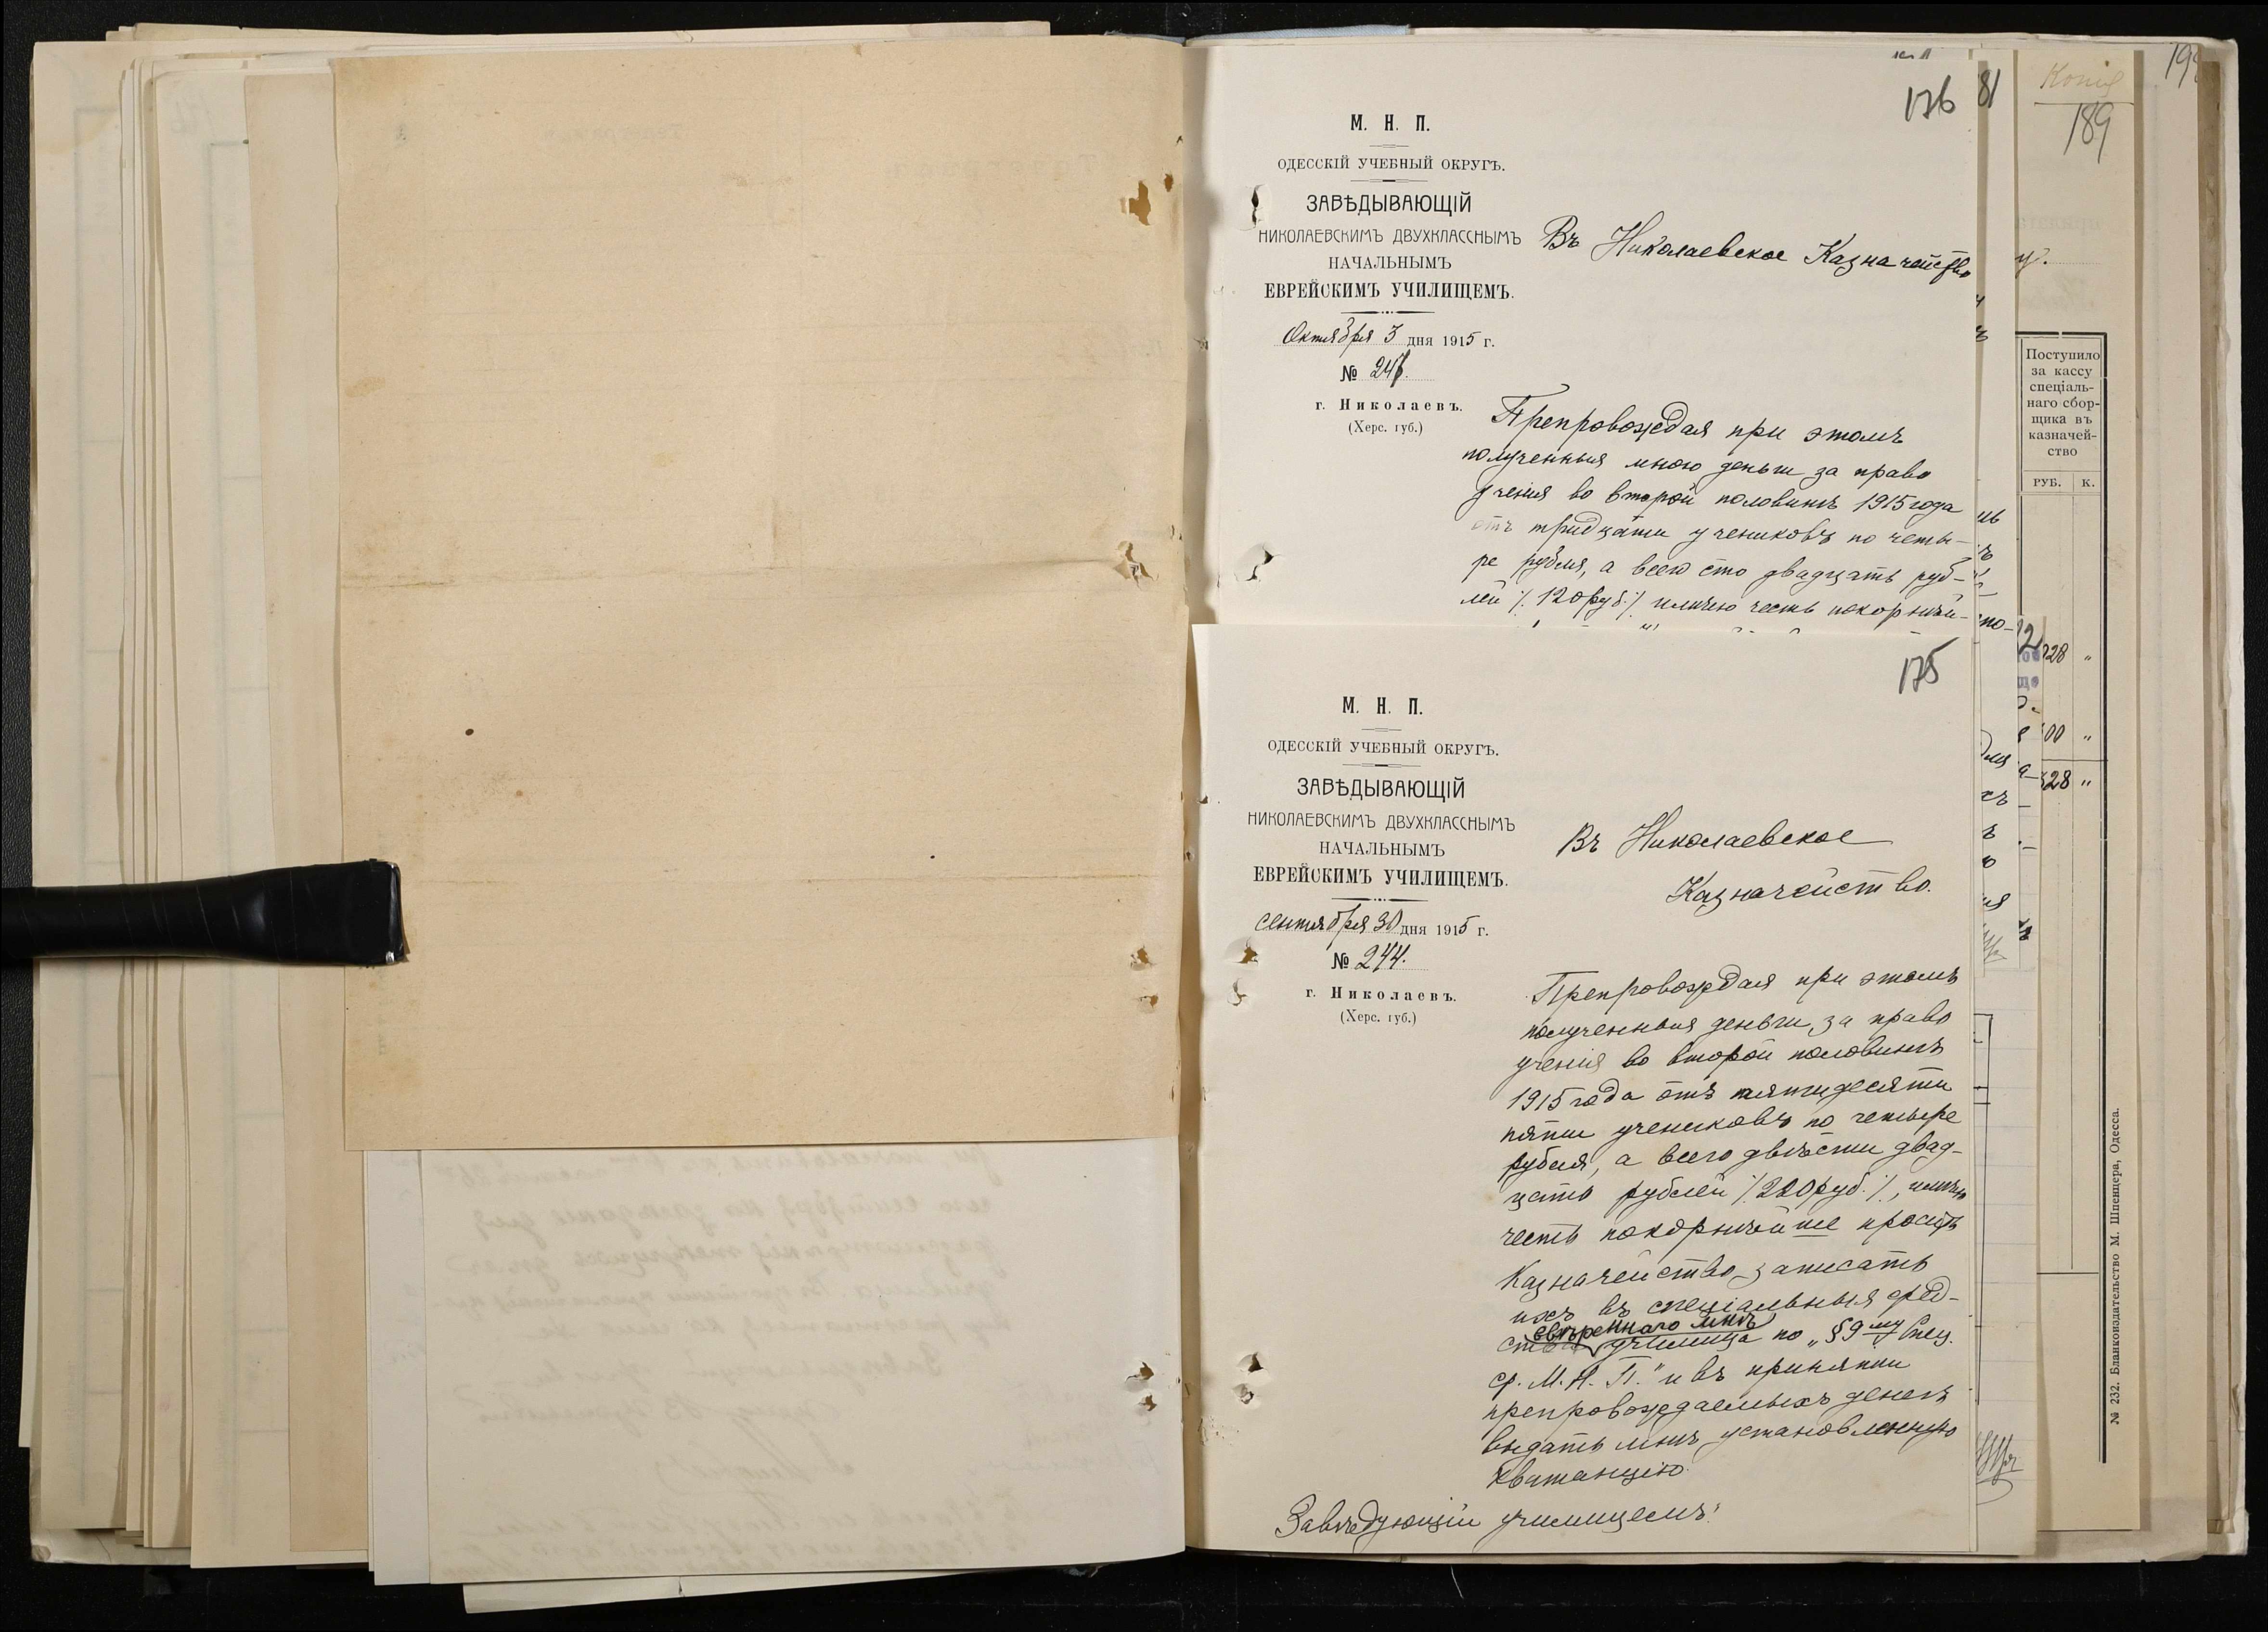 176
М. Н. П.
ОДЕССКІЙ УЧЕБНЫЙ ОКРУГЪ.
ЗАВѢДЫВАЮЩІЙ
НИКОЛАЕВСКИМЪ ДВУХКЛАССНЫМЪ
НАЧАЛЬНЫМЪ
ЕВРЕЙСКИМЪ УЧИЛИЩЕМЪ.
Октября 3 дня 1915 г.
№ 246.
г. Николаевъ.
(Херс. губ.)
Въ Николаевское Казначейство
Препровождая при этомъ
полученныя мною деньги за право
ученія во второй половинѣ 1915 года
отъ тридцати учениковъ по четы-
ре рубля, а всего сто двадцать руб-
лей /. 120 руб. / имѣю честь покорнѣй-
175
М. Н. П.
ОДЕССКІЙ УЧЕБНЫЙ ОКРУГЪ.
ЗАВѢДЫВАЮЩІЙ
НИКОЛАЕВСКИМЪ ДВУХКЛАССНЫМЪ
НАЧАЛЬНЫМЪ
ЕВРЕЙСКИМЪ УЧИЛИЩЕМЪ.
Сентября 30 дня 1915 г.
№ 244.
г. Николаевъ.
(Херс. губ.)
Въ Николаевское
Казначейство.
Препровождая при этомъ
полученныя деньги за право
ученія во второй половинѣ
1915 года отъ пятидесяти
пяти учениковъ по четыре
рубля, а всего двѣсти двад-
цать рублей /. 220 руб. /, имѣю
честь покорнѣйше просить
Казначейство записать
ихъ въ спеціальныя сред-
ввѣреннаго мнѣ
ства училища по „§ 9му Спец.
ср. М. Н. П.“ и въ принятіи
препровождаемыхъ денегъ
выдать мнѣ установленную
квитанцію.
Завѣдующій училищемъ:
81
Копія
189
Поступило
за кассу
спеціаль-
наго сбор-
щика въ
казначей-
ство
РУБ. К.
728 "
00 "
828 "
№ 232. Бланкоиздательство М. Шпенцера, Одесса.